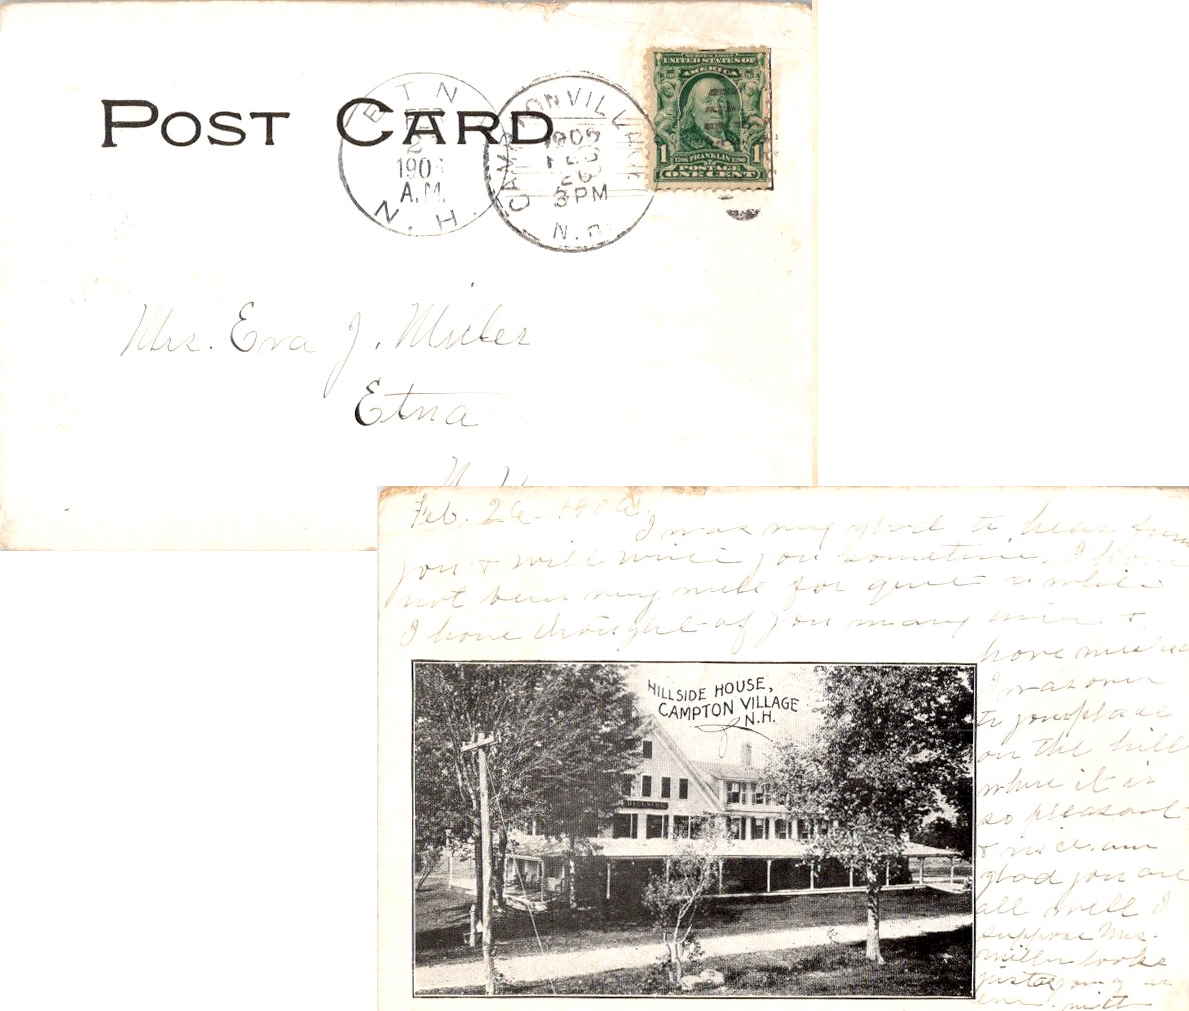 POST CARD
ETN
2
190
A.M.
N.H.
CAMPTON VILLAGE
1906
FEB
26
3 PM
N.H.
UNITED STATES OF
AMERICA
1 1706 FRANKLIN 1790 1
POSTAGE
ONE CENT
Mrs. Eva J. Miller
Etna
N.H.
Feb. 26. 1906.
I was very glad to hear from
you & will write you sometime. I have
not been very well for quite a while
I have thought of you many times &
have missed
I was over
to your place
on the hill
where it is
so pleasant
& nice. am
glad you are
all well I
suppose Mrs.
Miller looks
just
HILLSIDE HOUSE,
CAMPTON VILLAGE
N.H.
HILLSIDE